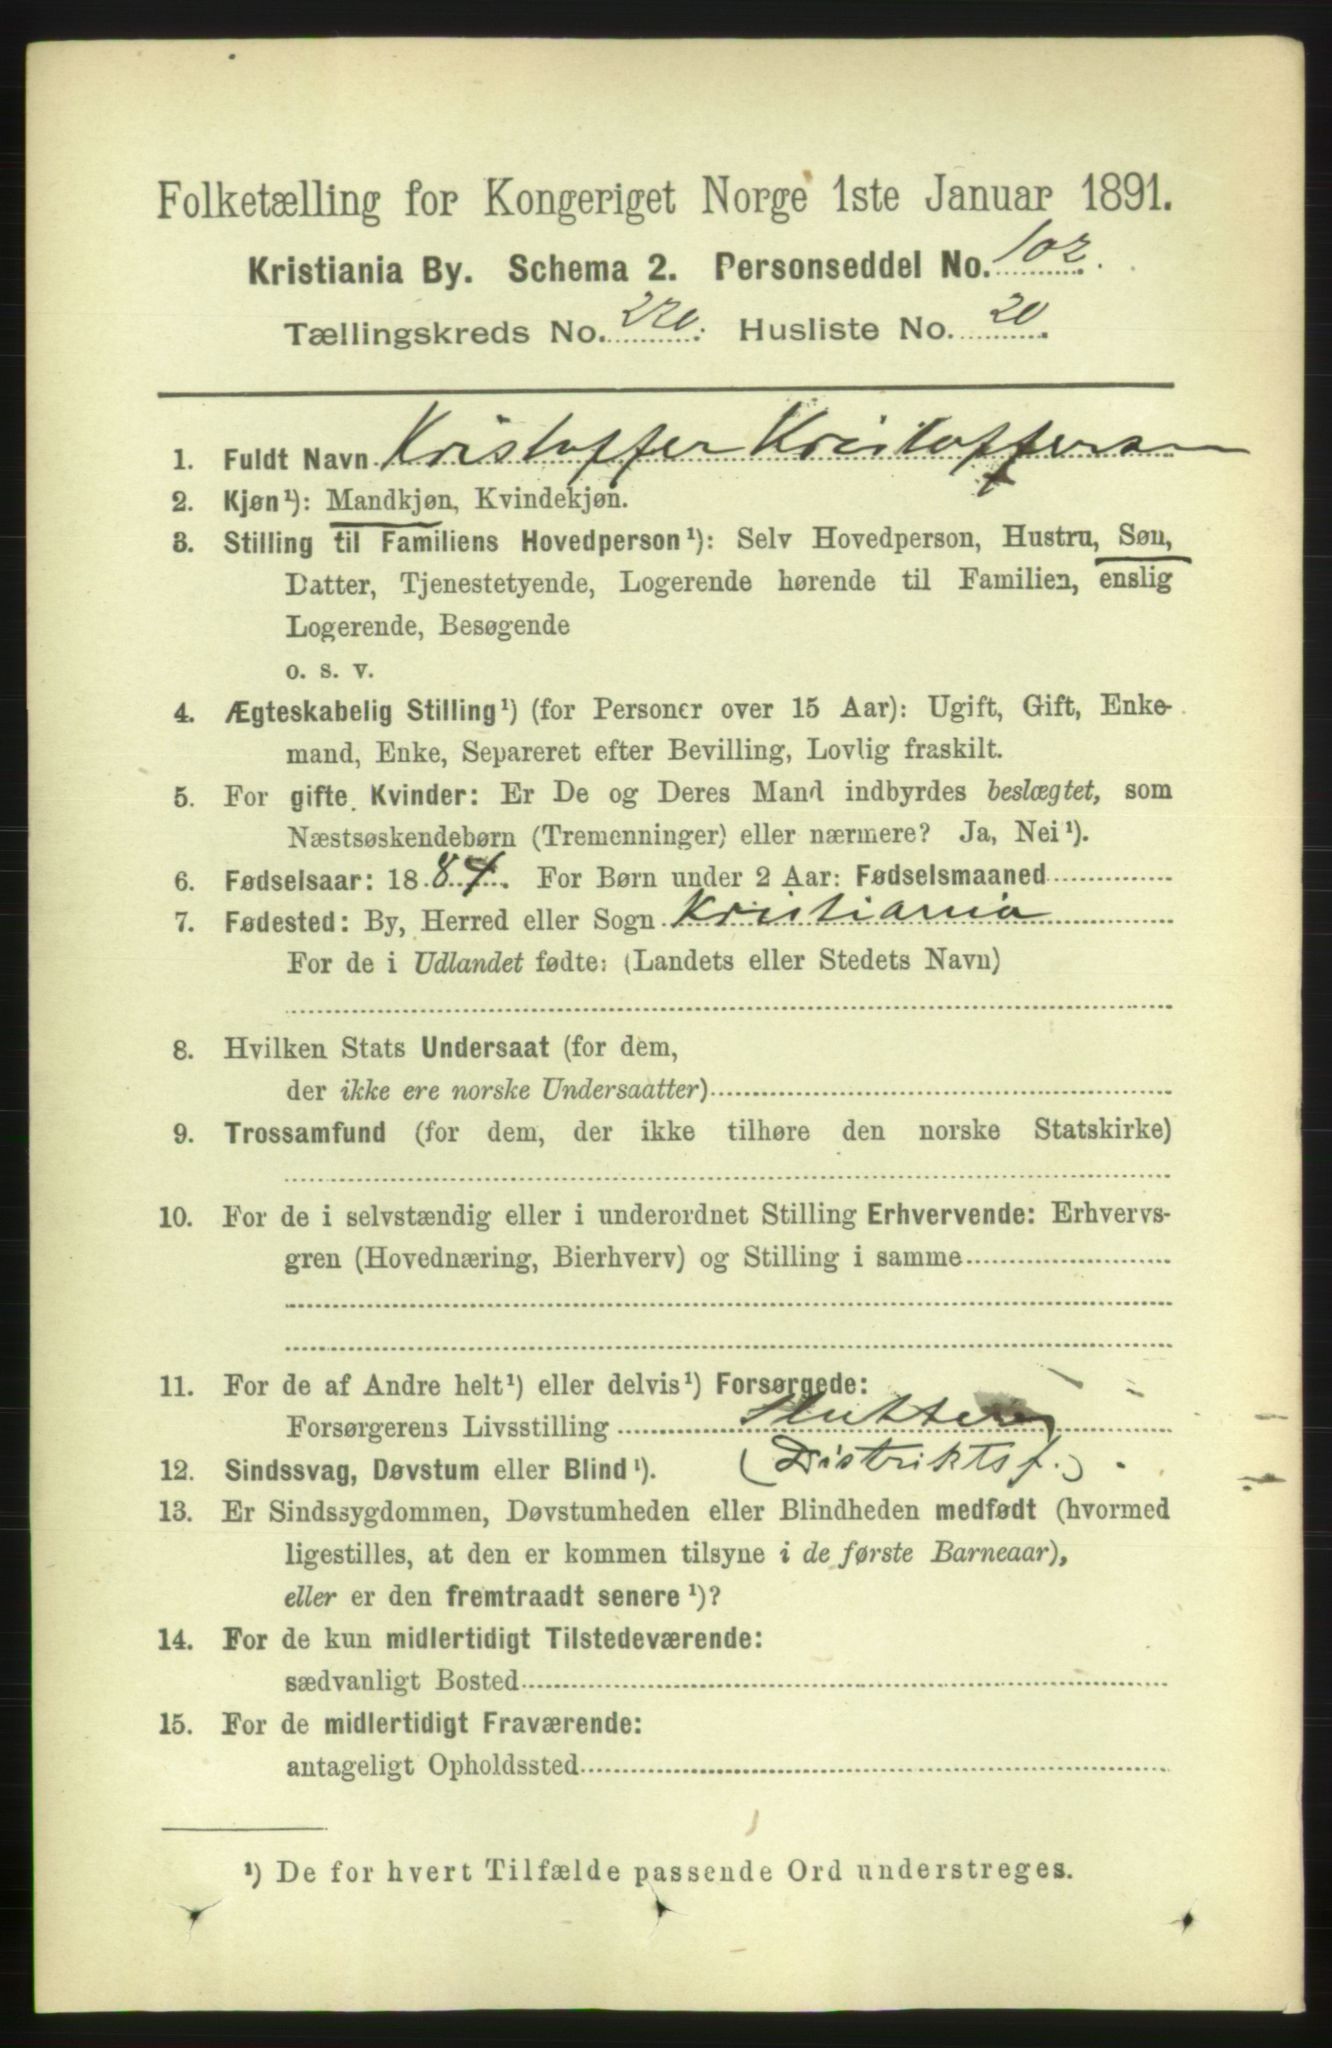 Folketælling for Kongeriget Norge 1ste Januar 1891.
Kristiania By. Schema 2. Personseddel No. 102.
Tællingskreds No. 220. Husliste No. 20.
1. Fuldt Navn Kristoffer Kristoffersen
2. Kjøn¹): Mandkjøn, Kvindekjøn.
3. Stilling til Familiens Hovedperson¹): Selv Hovedperson, Hustru, Søn,
Datter, Tjenestetyende, Logerende hørende til Familien, enslig
Logerende, Besøgende
o. s. v.
4. Ægteskabelig Stilling¹) (for Personer over 15 Aar): Ugift, Gift, Enke-
mand, Enke, Separeret efter Bevilling, Lovlig fraskilt.
5. For gifte Kvinder: Er De og Deres Mand indbyrdes beslægtet, som
Næstsøskendebørn (Tremenninger) eller nærmere? Ja, Nei¹).
6. Fødselsaar: 1884. For Børn under 2 Aar: Fødselsmaaned
7. Fødested: By, Herred eller Sogn Kristiania
For de i Udlandet fødte: (Landets eller Stedets Navn)
8. Hvilken Stats Undersaat (for dem,
der ikke ere norske Undersaatter)
9. Trossamfund (for dem, der ikke tilhøre den norske Statskirke)
10. For de i selvstændig eller i underordnet Stilling Erhvervende: Erhvervs-
gren (Hovednæring, Bierhverv) og Stilling i samme
11. For de af Andre helt¹) eller delvis¹) Forsørgede:
Forsørgerens Livsstilling Slutter
12. Sindssvag, Døvstum eller Blind¹). (Distriktsf.)
13. Er Sindssygdommen, Døvstumheden eller Blindheden medfødt (hvormed
ligestilles, at den er kommen tilsyne i de første Barneaar),
eller er den fremtraadt senere¹)?
14. For de kun midlertidigt Tilstedeværende:
sædvanligt Bosted
15. For de midlertidigt Fraværende:
antageligt Opholdssted
¹) De for hvert Tilfælde passende Ord understreges.